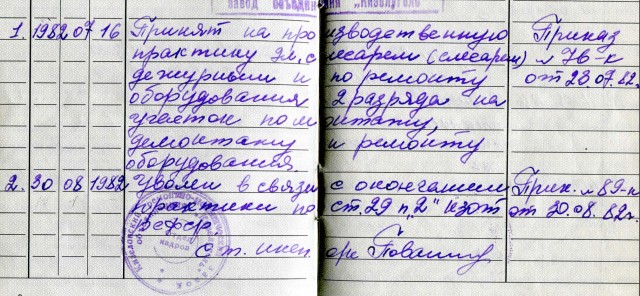 завод объединения "Кизелуголь"
1. 1982 07 16 Принят на производственную Приказ
практику эл. слесарем (слесарем) № 76-к
дежурным и по ремонту от 23.07.82г.
оборудования 2 разряда на
участок по монтажу,
демонтажу и ремонту
оборудования.
2. 30 08 1982 Уволен в связи с окончанием Прик. № 89-к
практики по ст. 29 п. "2" КЗоТ от 30.08.82г.
РСФСР
Ст. инсп.